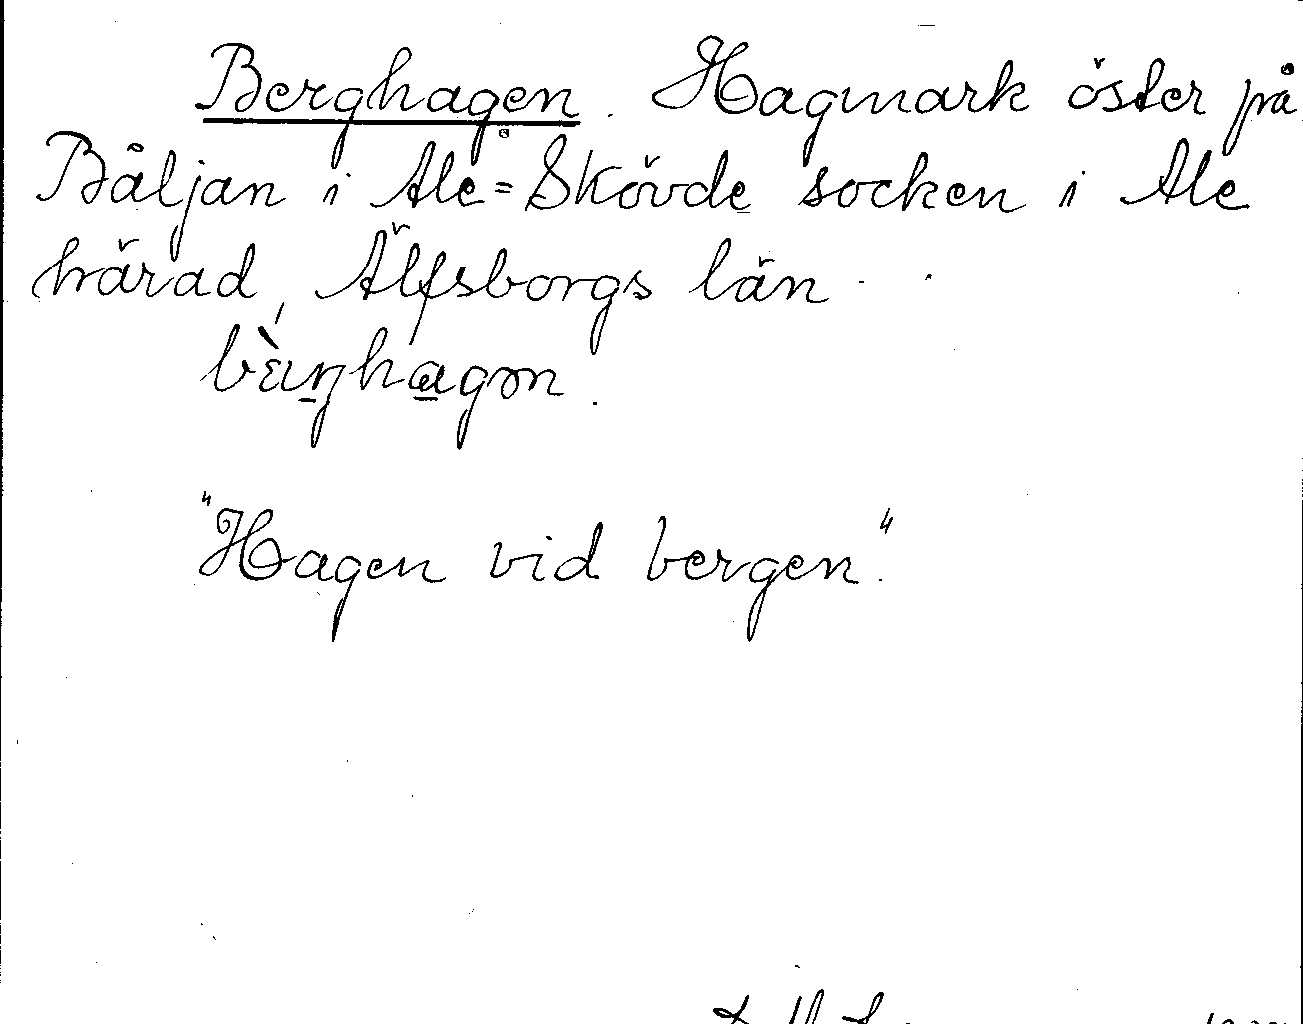 Berghagen. Hagmark öster på
Båljan i Ale=Skövde socken i Ale
härad, Älfsborgs län.
"Hagen vid bergen."